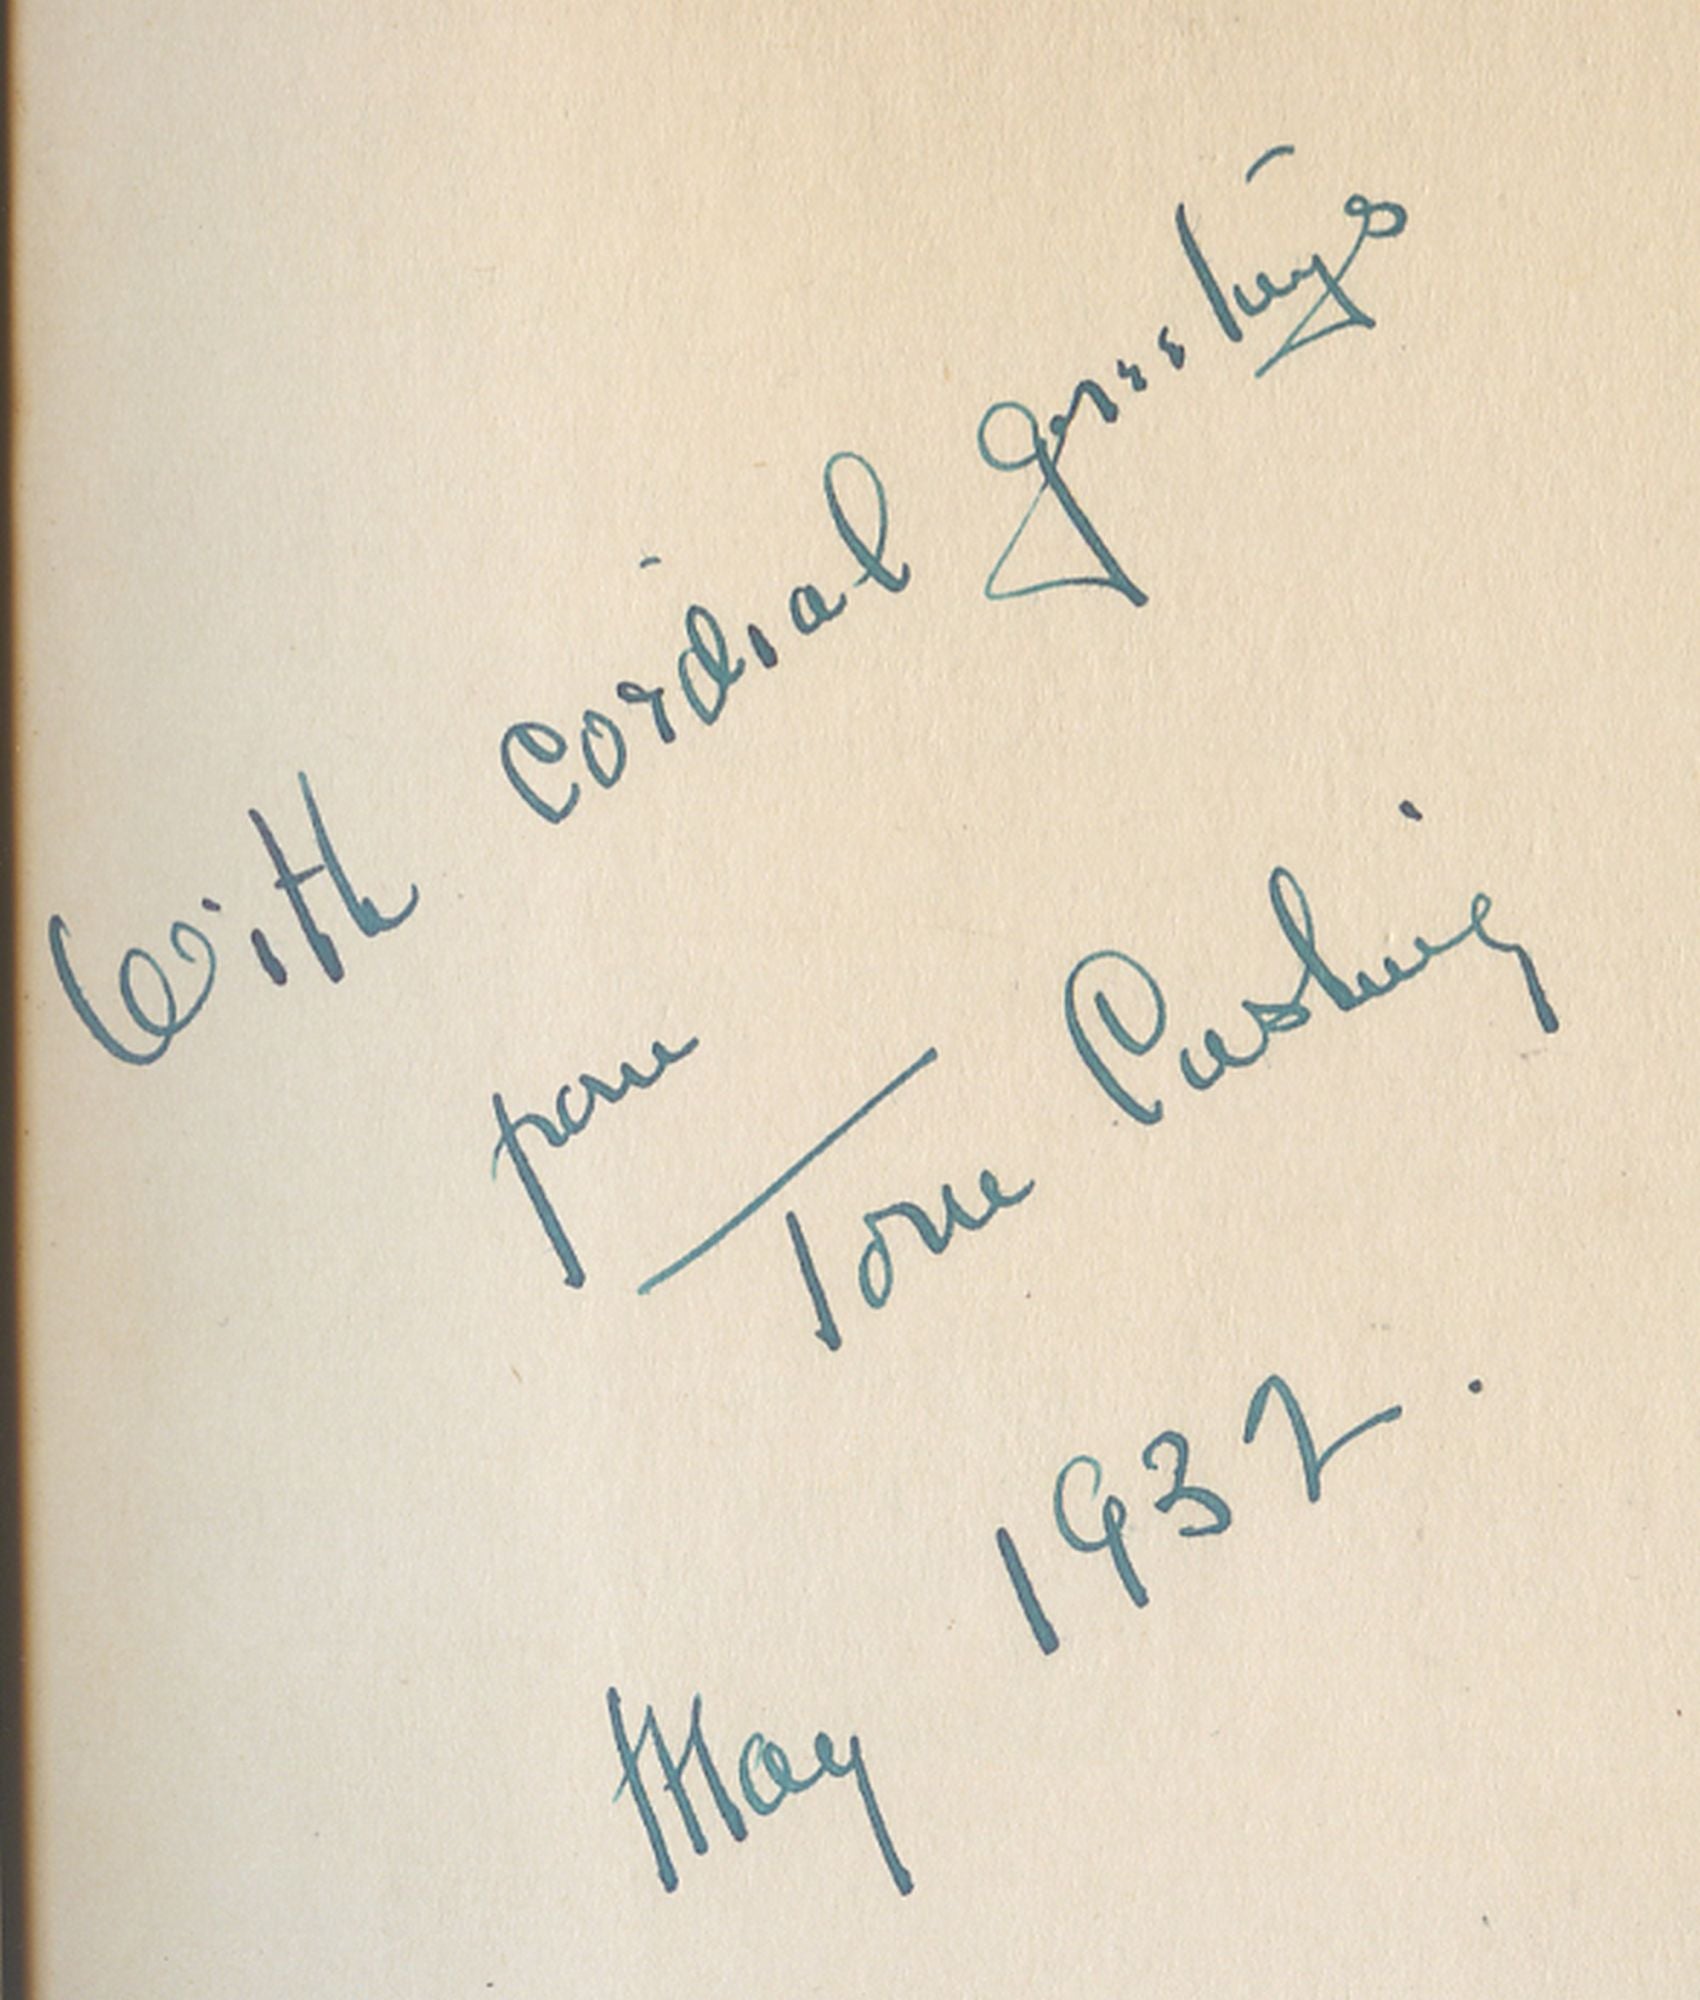 With cordial greetings
from
Tom Cushing
May 1932.